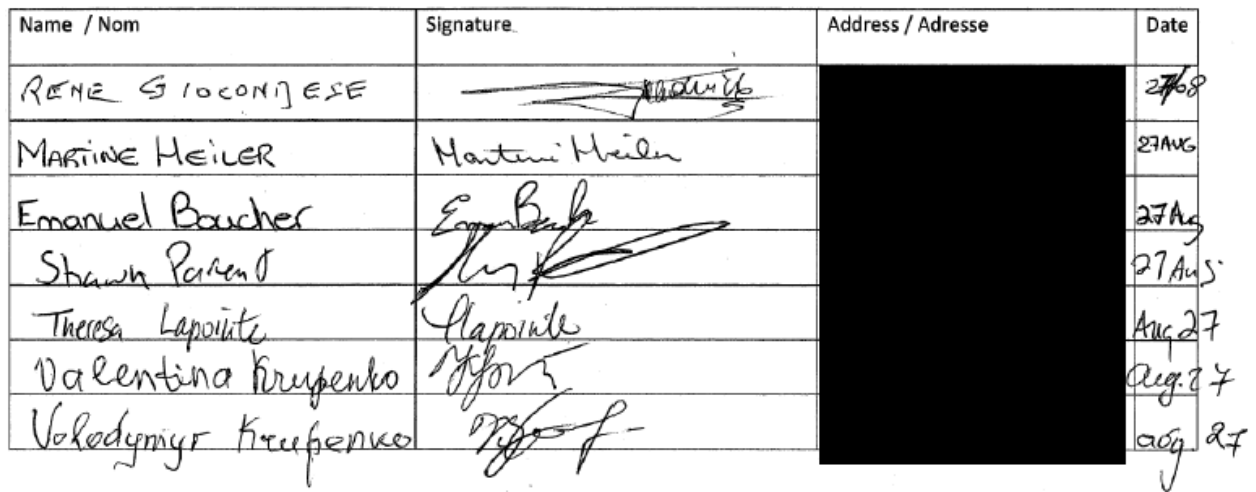 Name / Nom Signature Address / Adresse Date
RENE GIOCONDESE 27/08
MARTINE HEILER Martine Heiler 27AUG
Emanuel Boucher 27 Aug
Shawn Parent 27 Aug
Theresa Lapointe TLapointe Aug 27
Valentina Krupenko Aug. 27
Volodymyr Krupenko aug 27